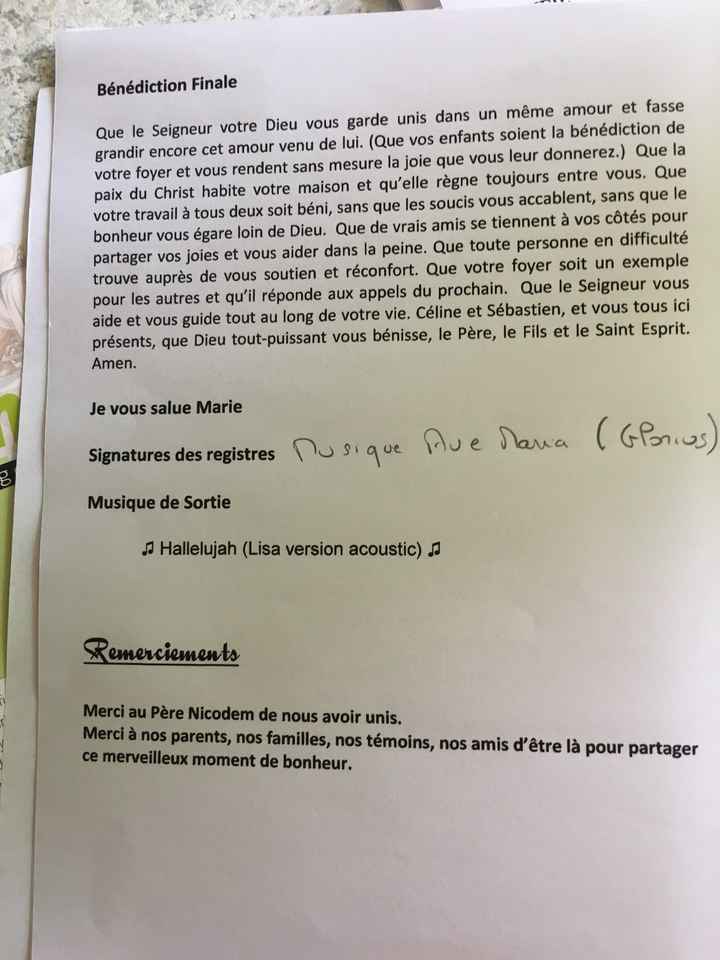 Bénédiction Finale
Que le Seigneur votre Dieu vous garde unis dans un même amour et fasse
grandir encore cet amour venu de lui. (Que vos enfants soient la bénédiction de
votre foyer et vous rendent sans mesure la joie que vous leur donnerez.) Que la
paix du Christ habite votre maison et qu'elle règne toujours entre vous. Que
votre travail à tous deux soit béni, sans que les soucis vous accablent, sans que le
bonheur vous égare loin de Dieu. Que de vrais amis se tiennent à vos côtés pour
partager vos joies et vous aider dans la peine. Que toute personne en difficulté
trouve auprès de vous soutien et réconfort. Que votre foyer soit un exemple
pour les autres et qu'il réponde aux appels du prochain. Que le Seigneur vous
aide et vous guide tout au long de votre vie. Céline et Sébastien, et vous tous ici
présents, que Dieu tout-puissant vous bénisse, le Père, le Fils et le Saint Esprit.
Amen.
Je vous salue Marie
Signatures des registres Musique Ave Maria (
Musique de Sortie
♫ Hallelujah (Lisa version acoustic) ♫
Remerciements
Merci au Père Nicodem de nous avoir unis.
Merci à nos parents, nos familles, nos témoins, nos amis d'être là pour partager
ce merveilleux moment de bonheur.